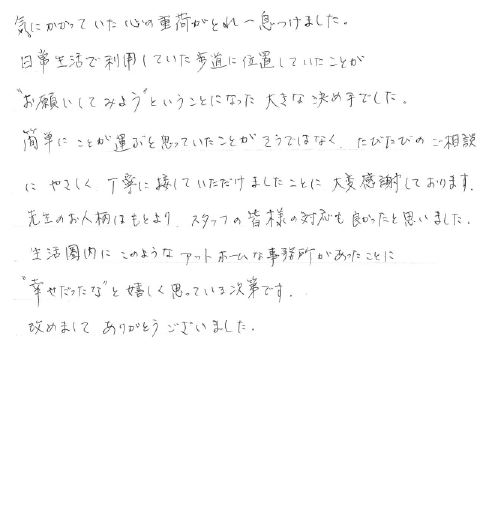 気にかかっていた心の重荷がとれ一息つけました。
日常生活で利用していた歩道に位置していたことが
"お願いしてみよう"ということになった大きな決め手でした。
簡単にことが運ぶと思っていたことがそうではなく、たびたびのご相談
にやさしく、丁寧に接していただけましたことに大変感謝しております。
先生のお人柄はもとより、スタッフの皆様の対応も良かったと思いました。
生活圏内にこのようなアットホームな事務所があったことに
"幸せだったな"と嬉しく思っている次第です。
改めましてありがとうございました。